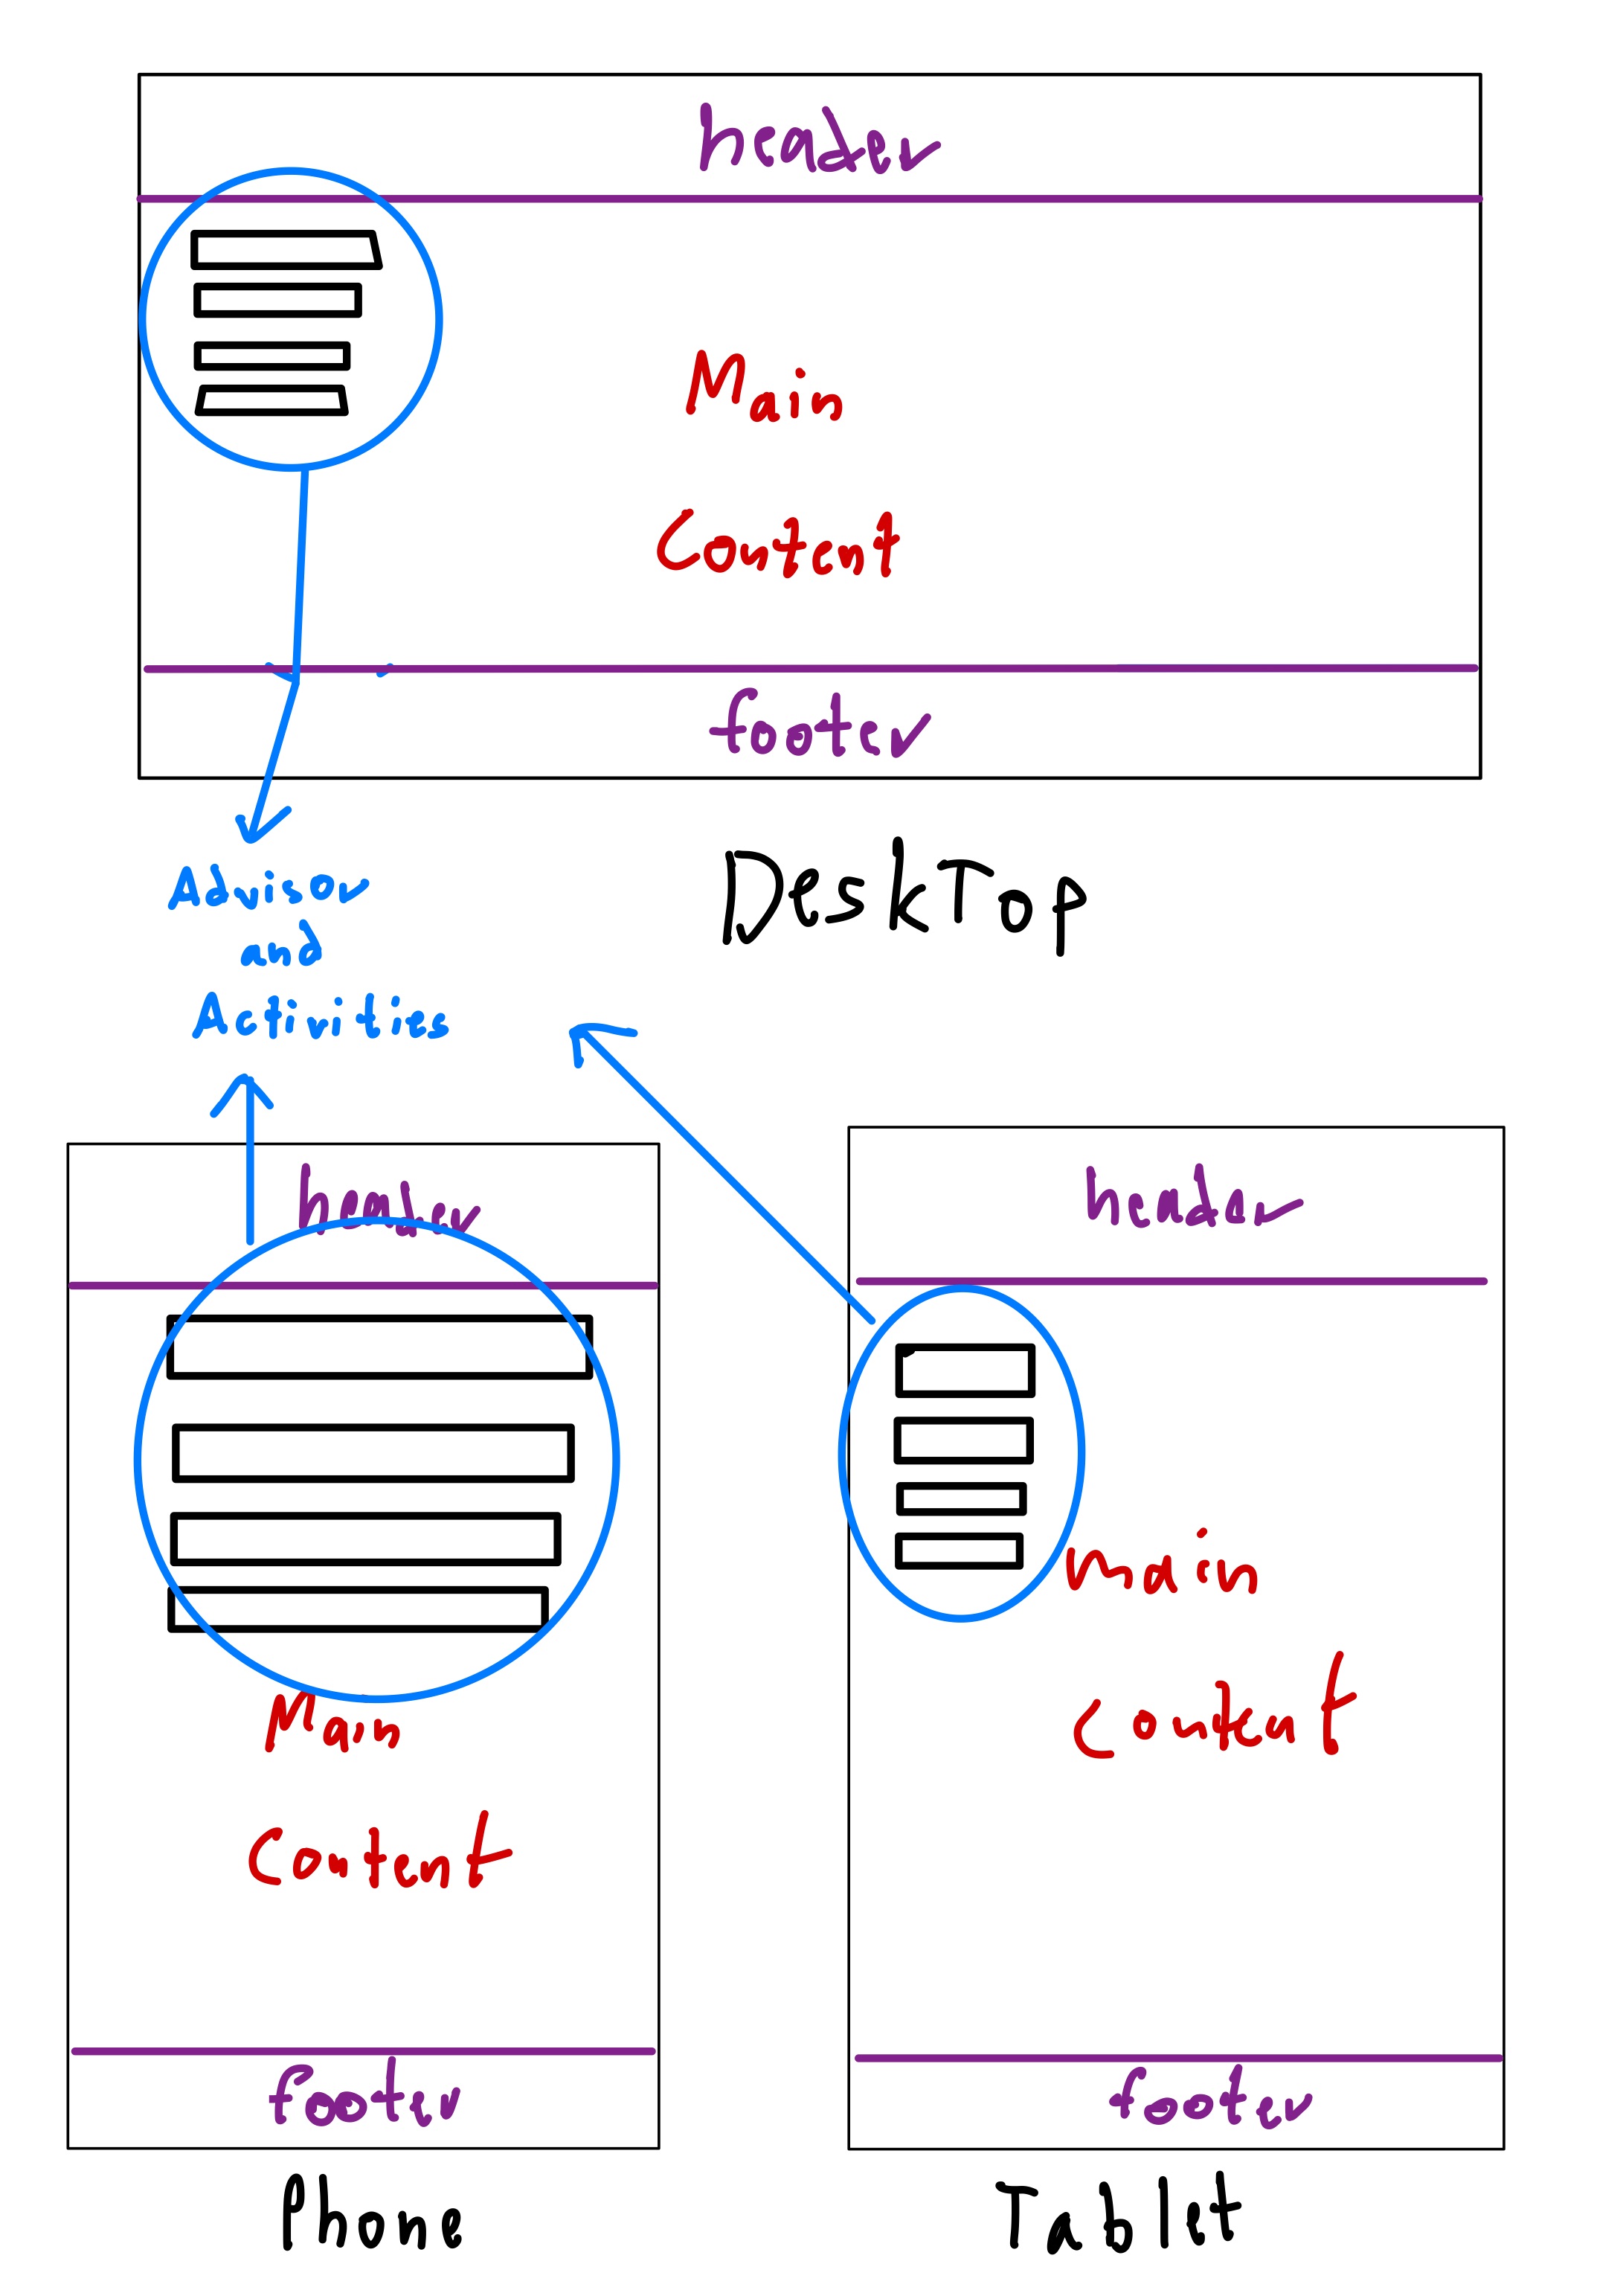 header
Main
Content
footer
DeskTop
Advisor
and
Activities
header
Main
Content
footer
Phone
header
main
content
footer
Tablet